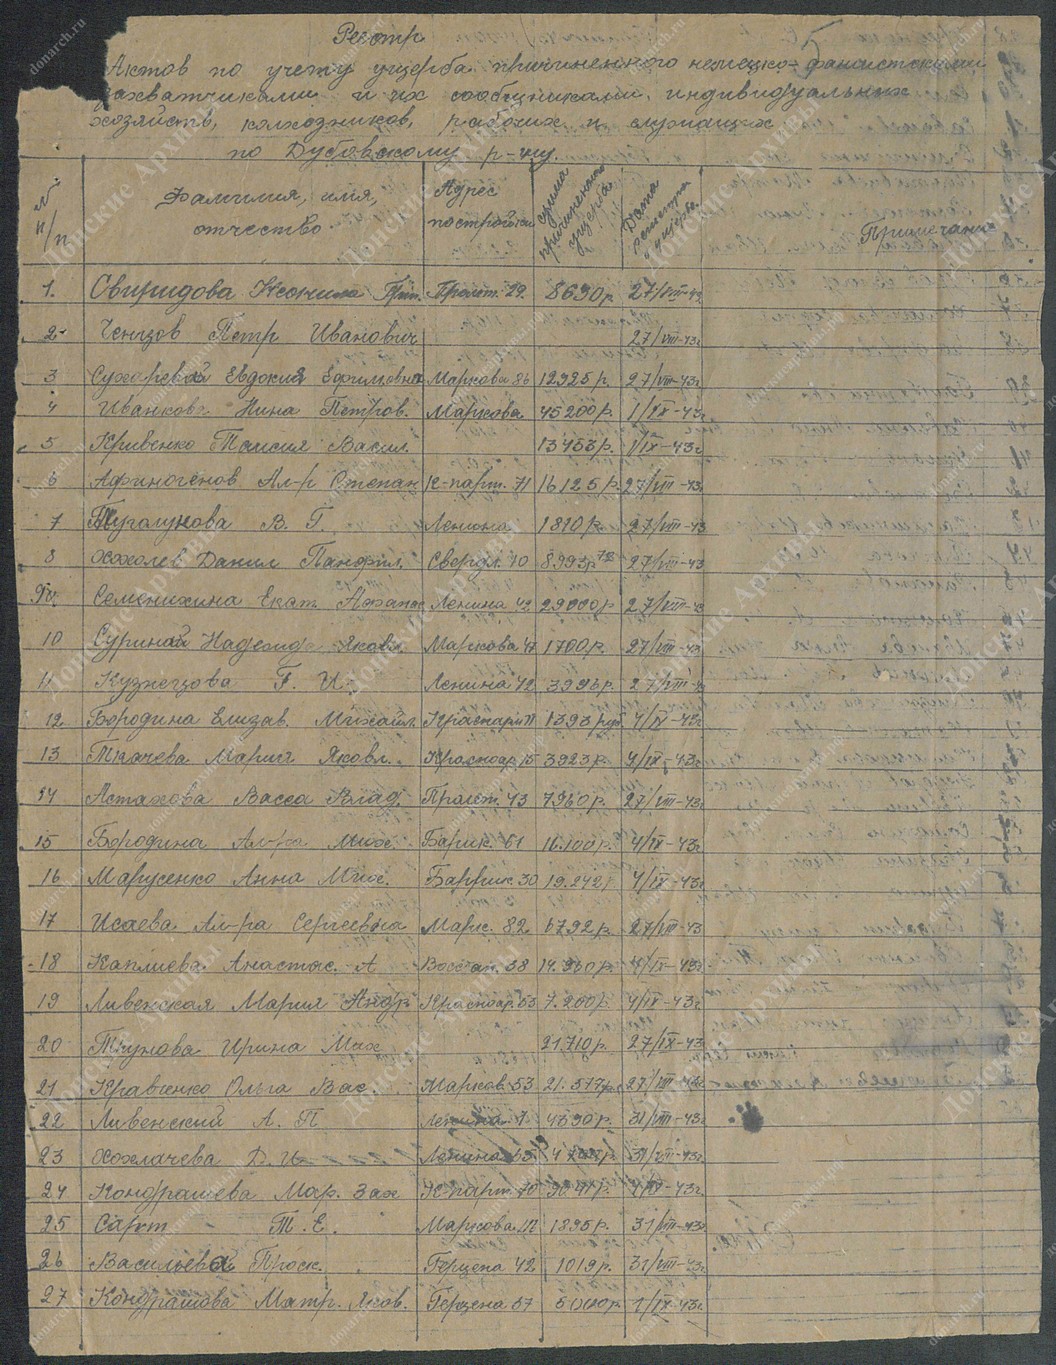 Реестр
5
Актов по учету ущерба причиненного немецко-фашистскими
захватчиками и их сообщниками, индивидуальных
хозяйств, колхозников, рабочих и служащих
по Дубовскому р-ну.
№ п/п Фамилия, имя, отчество Адрес постройки сумма причиненного ущерба Дата регистра ущерба Примечание
1. Свиридова Неонила Григ. Пролет. 29. 8690 р. 27/VIII-43
2 Ченцов Петр Иванович 27/VIII-43г
3 Сухарева Евдокия Ефимовна Маркова 86 12925 р. 27/VIII-43г
4 Иванкова Нина Петров. Маркова 45200 р. 1/IX-43г
5 Кривенко Таисия Васил. 13453 р. 1/IX-43г
6 Афиногенов Ал-р Степан К-парт. 71 16125 р. 27/VIII-43
7 В. Г. Ленина 1810 р. 27/VIII-43
8 Хохолев Данил Панфил. Свердл. 10 27/VIII-43
Семенихина Екат. Афанас Ленина 42 29000 р 27/VIII-43
10 Надежда Яковл. Маркова 47 1700 р. 27/VIII-43
11 Кузнецова Г. И. Ленина 72 3996 р. 27/VIII-43
12 Бородина Елизав. Михайл. 1393 руб 4/IX-43г
13 Ткачева Мария Яковл. Красноар 15 3923 р. 4/IX-43г
14 Астахова Васса Влад. Пролет. 43 7960 р. 27/VIII-43г
15 Бородина Ал-ра Мих. Барик. 61 16.100 р. 4/IX-43г
16 Марусенко Анна Мих. Баррик. 30 19.242 4/IX-43г
17 Исаева Ал-ра Сергеевна Марк. 82 6792 р. 27/VIII-43
18 Каплиева Анастас. А Восстан. 38 14.960 р. 4/IX-43г
19 Ливенская Мария Андр Красноар 53 7.260 р. 4/IX-43г
20 Ирина Мих 21710 р. 27/IX-43
21 Кравченко Ольга Вас. Марков. 53 21.577 р. 27/VIII-43г
22 Ливенский А. П. Ленина 4690 р. 31/VIII-43г.
23 Хохлачева Д. И. Ленина 31/VIII-43г.
24 Кондрашева Мар. Зах К-парт. 70 43г.
25 Т. Е. Маркова 1895 р. 31/VIII-43г
26 Васильева Проск. Герцена 42 1019 р. 31/VIII-43г.
27 Кондрашова Матр. Яков. Герцена 37 5000 р. 1/IX-43г.
Донские Архивы
donarch.ru